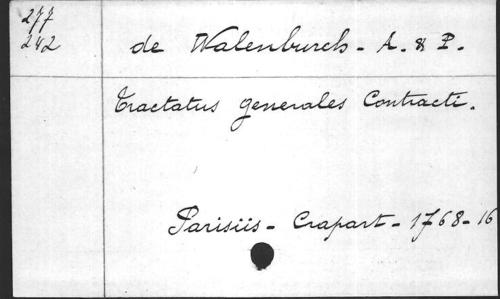 277
242
de Walenburch - A. & P.
Tractatus generales Contracti.
Parisiis - Crapart - 1768 - 16